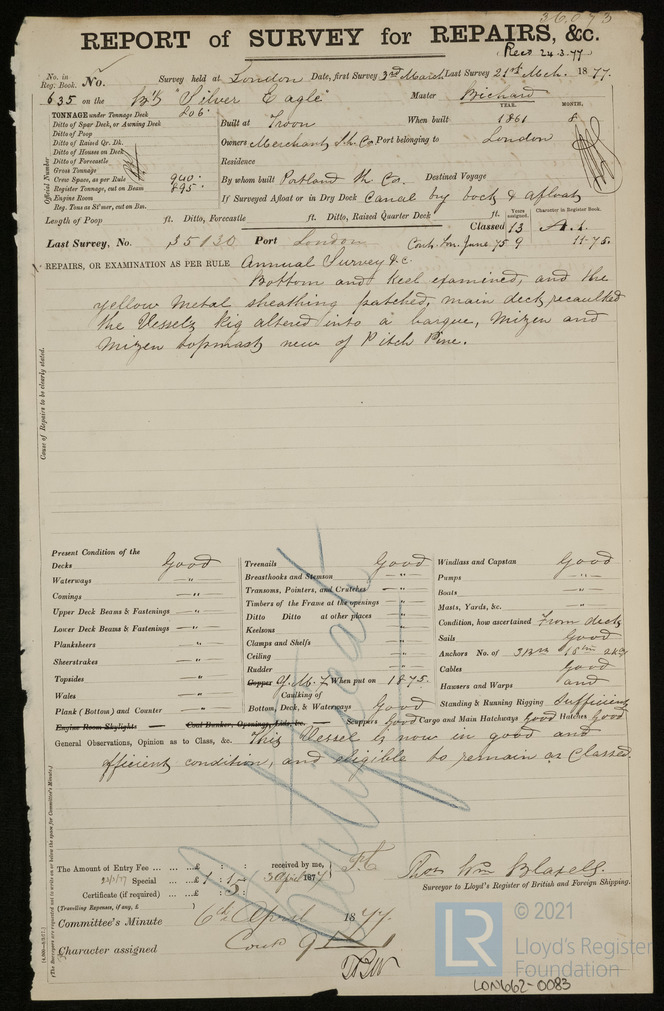 36,073
REPORT of SURVEY for REPAIRS, &c.
Recd 24.3.77
No. in Reg. Book. No. Survey held at London Date, first Survey 3rd March Last Survey 21st Mch. 1877.
635 on the "Silver Eagle" Master
TONNAGE under Tonnage Deck 806
Ditto of Spar Deck, or Awning Deck
Ditto of Poop
Ditto of Raised Qr. Dk.
Ditto of Houses on Deck
Ditto of Forecastle
Gross Tonnage
Crew Space, as per Rule 940
Register Tonnage, cut on Beam 895
Engine Room
Reg. Tons as St'mer, cut on Bm.
Official Number
YEAR. MONTH.
Built at Troon When built 1861 8
Owners Merchant Sh. Co. Port belonging to London
Residence
By whom built Portland Sh. Co. Destined Voyage
If Surveyed Afloat or in Dry Dock Canal dry dock & afloat
Length of Poop ft. Ditto, Forecastle ft. Ditto, Raised Quarter Deck ft.
Years assigned. Character in Register Book.
Classed 13 A.1.
Last Survey, No. 35130 Port London Cont. Lon. June 75 9 11-75.
REPAIRS, OR EXAMINATION AS PER RULE Annual Survey &c.
Bottom and Keel examined, and the
yellow metal sheathing patched, main deck recaulked
the Vessels Rig altered into a barque, Mizen and
Mizen topmast new of Pitch Pine.
Cause of Repairs to be clearly stated.
Present Condition of the
Decks Good
Waterways — " —
Comings — " —
Upper Deck Beams & Fastenings — " —
Lower Deck Beams & Fastenings — " —
Planksheers — " —
Sheerstrakes — " —
Topsides — " —
Wales — " —
Plank (Bottom) and Counter — " —
Engine Room Skylights — Coal Bunker, Openings, Lids, &c. —
Treenails Good
Breasthooks and Stemson — " —
Transoms, Pointers, and Crutches — " —
Timbers of the Frame at the openings — " —
Ditto Ditto at other places — " —
Keelsons — " —
Clamps and Shelfs — " —
Ceiling — " —
Rudder — " —
Copper Y.M. When put on 1875.
Caulking of
Bottom, Deck, & Waterways Good
Scuppers Good Cargo and Main Hatchways Good Hatches Good
Windlass and Capstan Good
Pumps — " —
Boats — " —
Masts, Yards, &c. — " —
Condition, how ascertained From deck
Sails Good
Anchors No. of 3 Brs
Cables Good
Hawsers and Warps and
Standing & Running Rigging Sufficient
General Observations, Opinion as to Class, &c. This Vessel is now in good and
efficient condition, and eligible to remain as Classed.
The Amount of Entry Fee ... ... ...£ : : received by me,
Special ... ...£ 1 : 5 : 3 April 1877
Certificate (if required) ... ...£ : :
(Travelling Expenses, if any, £ )
Thos Wm Blasell.
Surveyor to Lloyd's Register of British and Foreign Shipping.
Committee's Minute 6th April 1877.
Character assigned Cont 9
(The Surveyors are requested not to write on or below the space for Committee's Minute.)
LR
© 2021
Lloyd's Register
Foundation
LON662-0083